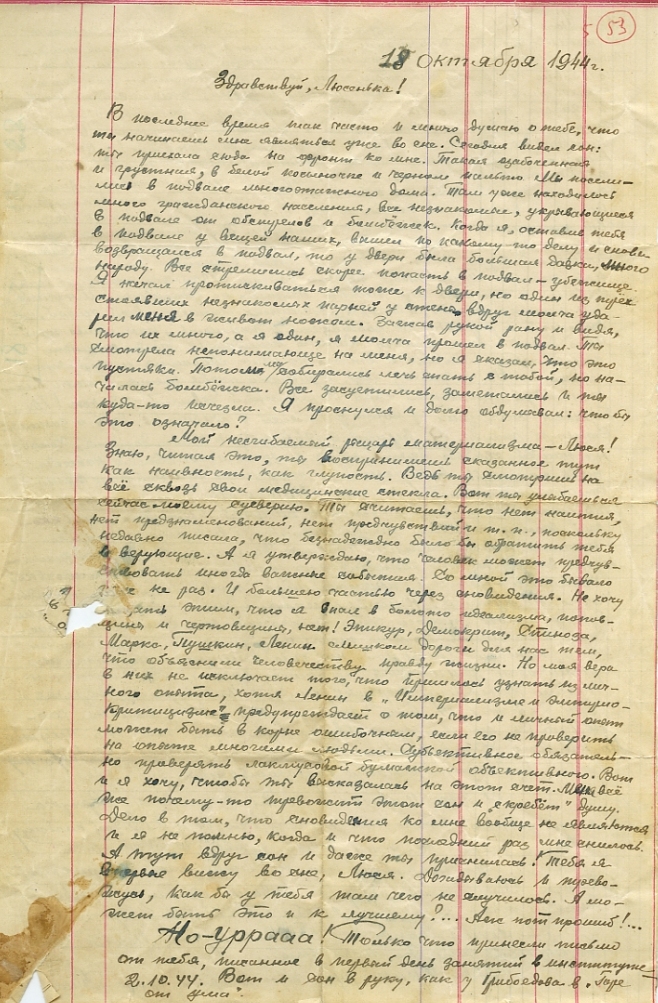 53
18 октября 1944 г.
Здравствуй, Люсенька!
В последнее время так часто и много думаю о тебе, что
ты начинаешь мне являться уже во сне. Сегодня видел сон:
ты приехала сюда на фронт ко мне. Такая озабоченная
и грустная, в белой косыночке и черном пальто. Мы посели-
лись в подвале многоэтажного дома. Там уже находилось
много гражданского населения, все незнакомые, укрывающиеся
в подвале от обстрелов и бомбёжек. Когда я, оставив тебя
в подвале у вещей наших, вышел по какому-то делу и снова
возвращался в подвал, то у двери была большая давка, много
народу. Все стремились скорее попасть в подвал – убежище.
Я начал протискиваться тоже к двери, но один из трех
стоявших незнакомых парней у стены вдруг молча уда-
рил меня в живот ножом. Зажав рукой рану и видя,
что их много, а я один, я молча прошел в подвал. Ты
смотрела непонимающе на меня, но я сказал, что это
пустяки. Потом мы собирались лечь спать с тобой, но на-
чалась бомбёжка. Все засуетились, заметались и ты
куда-то исчезла. Я проснулся и долго обдумывал: что бы
это означало?
Мой несгибаемый рыцарь материализма – Люся!
Знаю, читая это, ты воспринимешь сказанное тут
как наивность, как глупость. Ведь ты смотришь на
всё сквозь свои медицинские стекла. Вот ты улыбаешься
сейчас моему суеверию. Ты считаешь, что нет наития,
нет предзнаменований, нет предчувствий и т. п., поскольку
недавно писала, что безнадежно было бы обратить тебя
в верующие. А я утверждаю, что человек может предчув-
ствовать иногда важные события. Со мной это бывало
не раз. И большею частью через сновидения. Не хочу
этим, что я впал в болото идеализма, попов-
щины и чертовщины, нет! Эпикур, Демокрит, Спиноза,
Маркс, Пушкин, Ленин слишком дороги для нас тем,
что объяснили человечеству правду жизни. Но моя вера
в них не исключает того, что пришлось узнать из лич-
ного опыта, хотя Ленин в „Империализме и эмпирио-
критицизме" предупреждает о том, что и личный опыт
может быть в корне ошибочным, если его не проверить
на опыте многими людьми. Субъективное обязатель-
но проверять лакмусовой бумажкой объективного. Вот
и я хочу, чтобы ты высказалась на этот счет. Меня всё
же почему-то тревожит этот сон и „скребёт" душу.
Дело в том, что сновидения ко мне вообще не являются
и я не помню, когда и что последний раз мне снилось.
А тут вдруг сон и даже ты приснилась! Тебя я
впервые вижу во сне, Люся. Догадываюсь и трево-
жусь, как бы у тебя там чего не случилось. А мо-
жет быть это и к лучшему?... Аж пот прошиб!...
Но-уррааа! Только что принесли письмо
от тебя, писанное в первый день занятий в институте –
2.10.44. Вот и сон в руку, как у Грибоедова в „Горе
от ума"